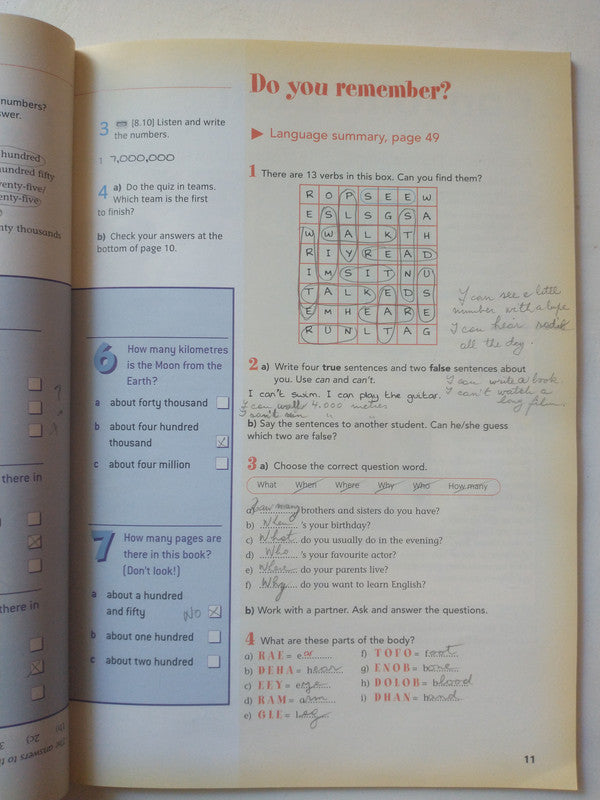 numbers?
swer.
hundred
hundred fifty
venty-five/
enty-five
nty thousands
there in
there in
2c)
3 [8.10] Listen and write
the numbers.
1 7,000,000
4 a) Do the quiz in teams.
Which team is the first
to finish?
b) Check your answers at the
bottom of page 10.
6 How many kilometres
is the Moon from the
Earth?
a about forty thousand
b about four hundred
thousand
c about four million
7 How many pages are
there in this book?
(Don't look!)
a about a hundred
and fifty NO
b about one hundred
c about two hundred
Do you remember?
Language summary, page 49
1 There are 13 verbs in this box. Can you find them?
R O P S E E W
E S L S G S A
W W A L K T H
R I Y R E A D
I M S I T N U
T A L K E D S
E M H E A R E
R U N L T A G
I can see a
number with a
I can hear
all the day.
2 a) Write four true sentences and two false sentences about
you. Use can and can't.
I can write a book.
I can't swim. I can play the guitar.
I can't watch a
long film.
I can walk 4.000 metres
I can't
b) Say the sentences to another student. Can he/she guess
which two are false?
3 a) Choose the correct question word.
What When Where Why Who How many
a) How many brothers and sisters do you have?
b) When 's your birthday?
c) What do you usually do in the evening?
d) Who 's your favourite actor?
e) Where do your parents live?
f) Why do you want to learn English?
b) Work with a partner. Ask and answer the questions.
4 What are these parts of the body?
a) RAE = ear
b) DEHA =
c) EEY = eye
d) RAM = arm
e) GLE = leg
f) TOFO = foot
g) ENOB = bone
h) DOLOB = blood
i) DHAN = hand
11